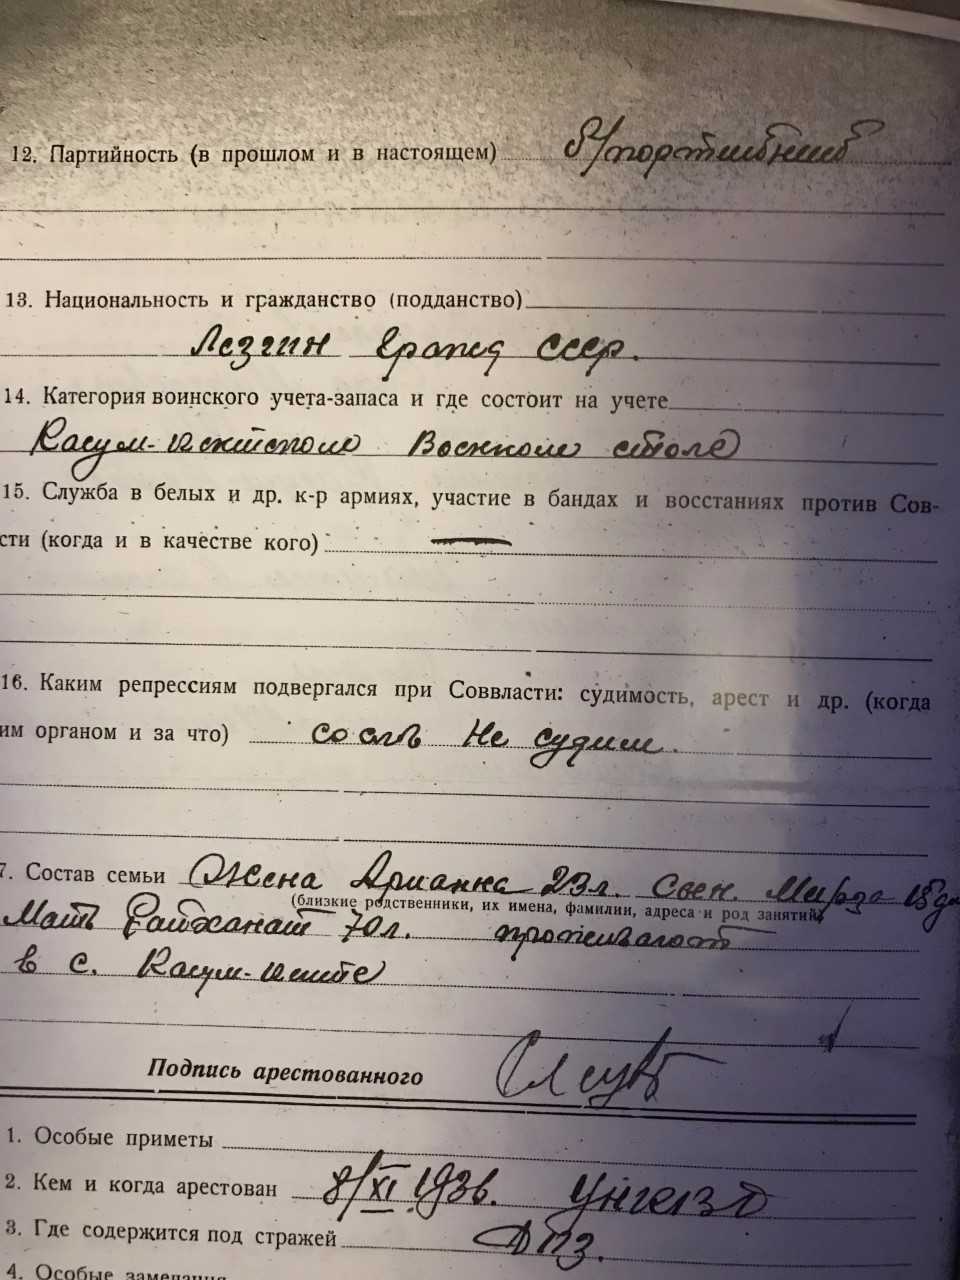 12. Партийность (в прошлом и в настоящем) б/партийный
13. Национальность и гражданство (подданство)
Лезгин гражд СССР.
14. Категория воинского учета-запаса и где состоит на учете
Касум-кентском Военном столе
15. Служба в белых и др. к-р армиях, участие в бандах и восстаниях против Сов-
сти (когда и в качестве кого) —
16. Каким репрессиям подвергался при Соввласти: судимость, арест и др. (когда
им органом и за что) со слов Не судим.
7. Состав семьи Жена 23 л. Мирза
(близкие родственники, их имена, фамилии, адреса и род занятий)
Мать 70 л. проживают
в с. Касум-кенте
Подпись арестованного
1. Особые приметы
2. Кем и когда арестован 8/XI 193 УНГБ
3. Где содержится под стражей ДПЗ.
4. Особые замечания